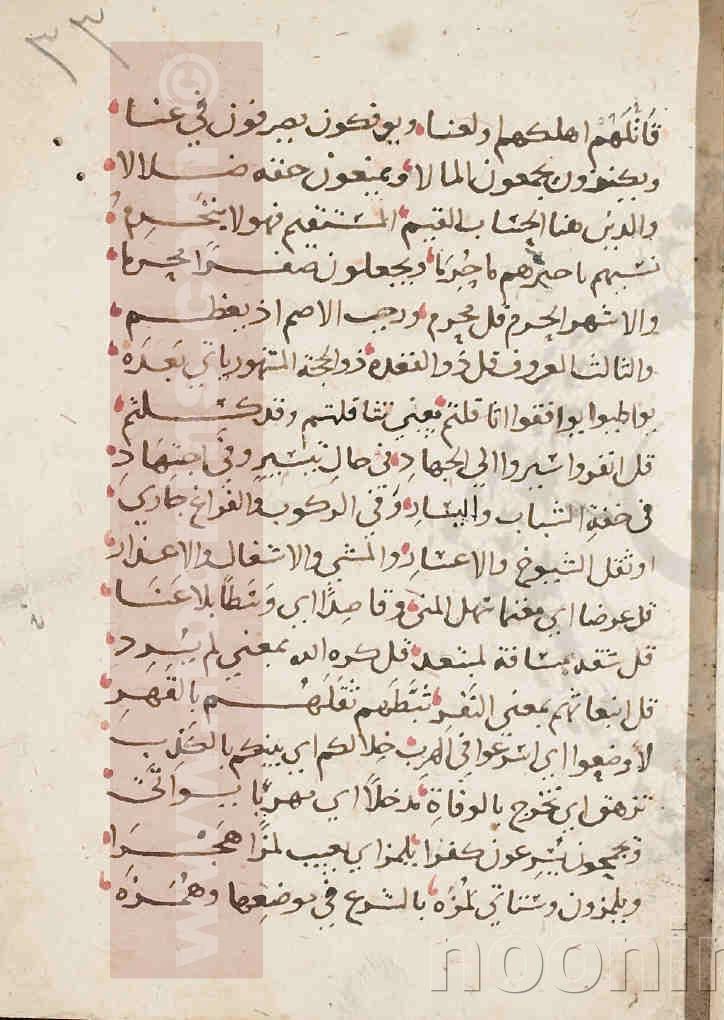 ٣٣
قَاتَلَهُمْ اهلكهم او لعنا ويوفكون يصرفون في عنا
ويكنزون يجمعون المالا ويمنعون حقه ضلالا
والدين هنا الحساب القيم المستقيم فهو لا ينخرم
نسيهم تاخيرهم ما حُرِما ويجعلون صفرًا محرما
والاشهر الحرم قل محرم ورجب الاصم اذ يعظم
والثالث المعروف قل ذو القعده ذو الحجة المشهور ياتي بَعدَه
يواطيوا يوافقوا اثاقلتم يعني تثاقلتم وقد كسلتم
قل انفروا سيروا الي الجهادِ في حال تيسيرٍ وفي اجتهادِ
في خفةِ الشباب واليسارِ وفي الركوب والفراغ جاري
او ثقل الشيوخ والاعسارِ والمشي والاشغال والاعذار
قل عرضا اي مغنما سهل المني وقاصدًا اي وسَطًا بلا عَنَا
قل شقة مسافة لمبتعد قل كره الله بمعني لم يُرِدِ
قل انبعاثهم بمعني النَّفرِ ثبَّطَهم ثقَّلَهُم بالقَهرِ
لأوضعوا اي اسرعوا في الهرب خلالكم اي بينكم بالكذب
تزهق اي تخرج بالوفاةِ مدخلاً اي مهربًا يواتي
ويجمحون يُسرِعون كفرا يلمز اي يعيب لمزًا هَجْرَا
ويلمزون وستاتي لُمَزَه بالشرع في موضعها وهُمَزَه
www.
noonin